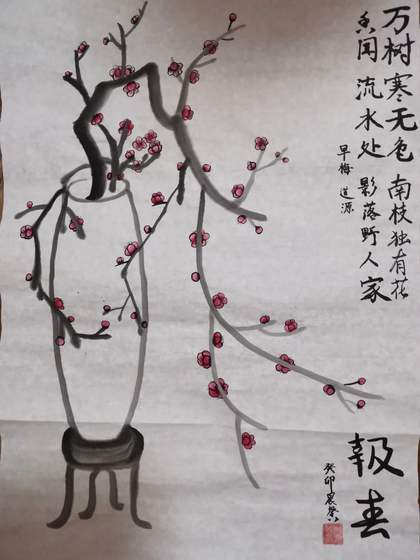 万树寒无色 南枝独有花
香闻流水处 影落野人家
早梅 道源
報春
癸卯